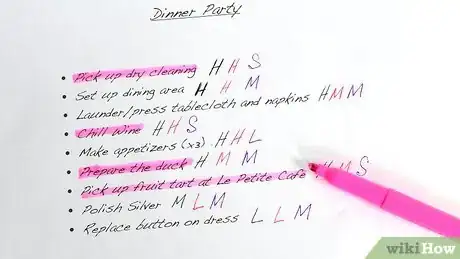 Dinner Party
• Pick up dry cleaning H H S
• Set up dining area H H M
• Launder/press tablecloth and napkins H M M
• Chill Wine H H S
• Make appetizers (x3) H H L
• Prepare the duck H M M
• Pick up fruit tart at Le Petite Cafe H M S
• Polish Silver M L M
• Replace button on dress L L M
wikiHow